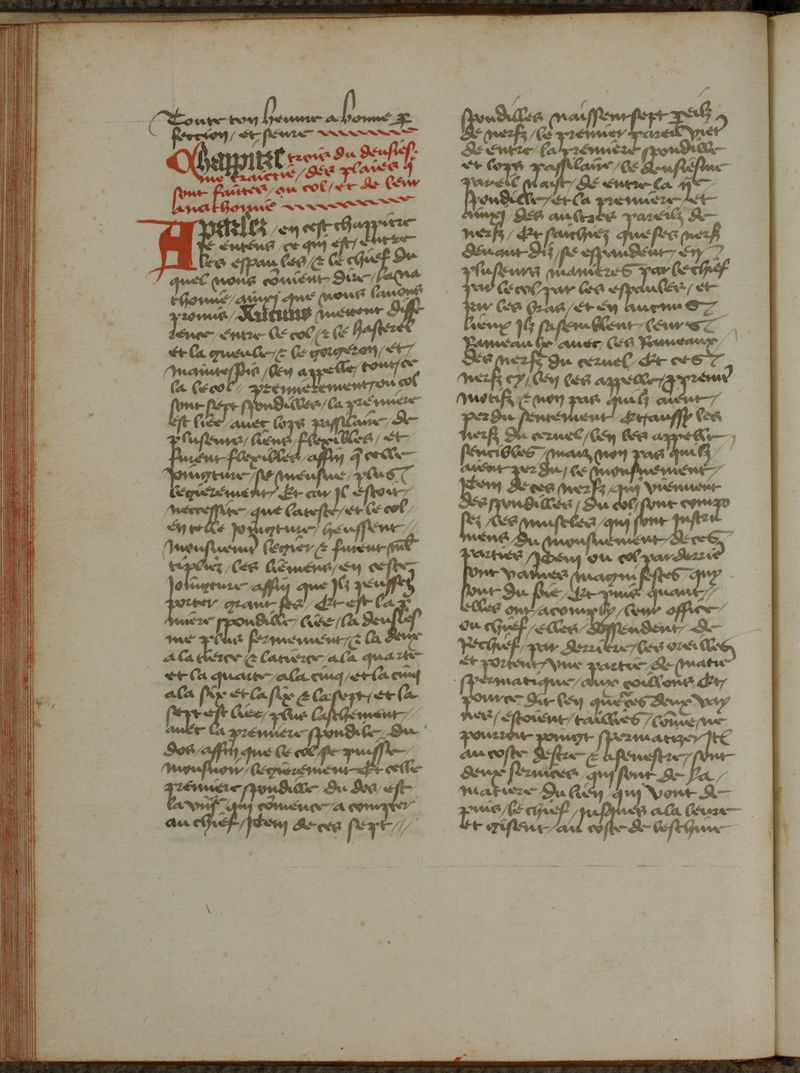 Toute ton heuure a bonne ꝑ
fection / et seure
Chappitre trois du deusies-
me traictie / des plaies q̄
sont faittes / ou col / et de leur
anathomie
Aparlez / en cest chappitre
Je entens / ce qui est / entre
les espaules / & le chief du
quel nous conuient dire / la na
thomie / ainsi que nous lauons
promis / Aucuns mettent diffe
rence / entre le col / & le hasterel
et la gueule / & le gorgeron / et /
maintesfois / len appelle / tout ce
la le col // premierement / ou col
sont sept spondilles / la premiere
est liee / auec lops passilaire / de
plusieurs / liens / flexibles / et
furent flexibles / affin q̄ celle
joingture / se meusue / plus /
legierement / Et car Il estoit /
neccessite / que la teste / et le col /
en telle joingture / heussent //
mouuement legier / & furent ml̄
tipliez / les liemens / en ceste
joingture / affin que Ilz peussēt
porter / grant fes / Et est la p̄
miere spondille / liee / la deusies
me plus fermement / & la deux
a la tierce & la tierce / a la quarte
et la quarte / a la cinq / et la cinq
a la six et la six & la sept / et la
sept est liee / plus laschement //
auec la premiere spondile / du
dos / affin que le col / se puisse /
mouuoir / legierement Et celle
premiere spondille du dos / est
la viijᵉ qui cōmence / a compter
au chief / Item de ces sept //
spondilles / naissent sept pareilz
de nerfz / le premier pareil viēt
de entre / la premiere spondille
et lops passilaire / le deusiesme
pareil naist / de entre la ijᵉ
spondille / et la premiere / et
ainsi / des aultres pareilz de
nerfz / Et saichiez que ses nerfz
deuant diz / se espandent / en
plusieurs manieres par le chief
par le col par les espaules / et
par les bras / et en aucuns
lieux Ilz sasemblent / leurs
Rameaulx auec les Rameaux
des nerfz du ceruel / Et ces
nerfz cy / len les appelle / ꝓpremēt
motifz & non pas quilz aient /
perdu sentement / Et aussy les
nerfz du ceruel / len les appelle
sencibles / maiz non pas quilz
aient perdu / le mouuement /
Item de ces nerfz / qui viennent
des spondilles / du col / sont compo
sez / les muscles / qui sont Instru
mens / du mouuement / de ces
parties / Item ou col par derriē
sont vaines / magnifestes quy
sont du foie / Et puis quant //
elles ont acomply / leur office /
ou chief / elles / dessendent / de
Rechief / par derriere / les oreilles
et portent / vne partie / de matiē
spermatique / aux coillons Et /
pource dit len que ces deux vay
nes / estoient / taillies / lōme ne
pourroit poingt spermatizer Itē
au coste destre & a senestre / sont
deux
matiere du lien / qui vont de
puis / le chief / jusques a la
et gisent / au coste de leschine